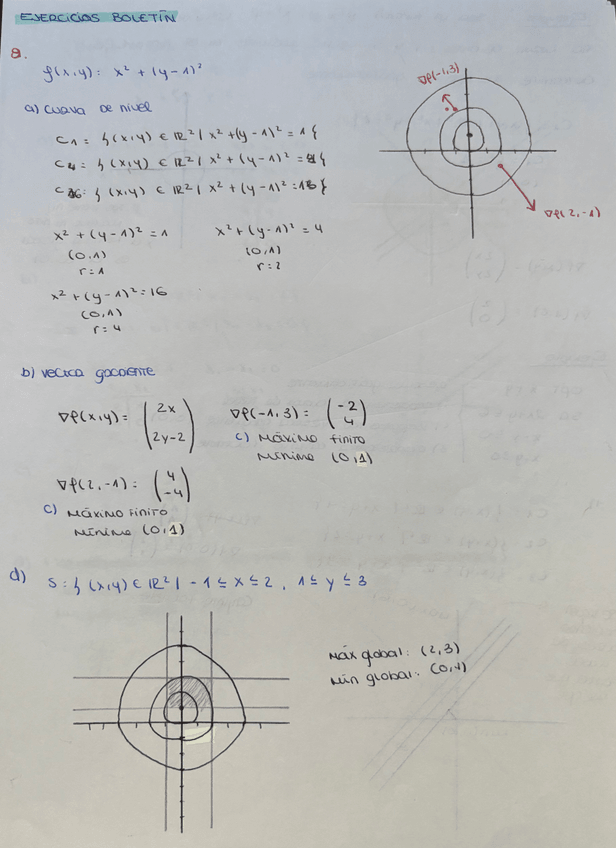 EJERCICIOS BOLETÍN
8.
f(x,y): x² + (y-1)²
a) CURVA DE NIVEL
C1 = { (x,y) ∈ IR² | x² + (y-1)² = 1 {
C4 = { (x,y) ∈ IR² | x² + (y-1)² = 4 {
C16: { (x,y) ∈ IR² | x² + (y-1)² = 16 }
∇f(-1,3)
∇f(2,-1)
x² + (y-1)² = 1 x² + (y-1)² = 4
(0,1) (0,1)
r=1 r=2
x² + (y-1)² = 16
(0,1)
r=4
b) VECTOR GRADIENTE
∇f(x,y) = (2x 2y-2) ∇f(-1,3) = (-2 4)
c) MÁXIMO FINITO
MÍNIMO (0,1)
∇f(2,-1) = (4 -4)
c) MÁXIMO FINITO
MÍNIMO (0,1)
d) S: { (x,y) ∈ IR² | -1 ≤ x ≤ 2, 1 ≤ y ≤ 3
MÁX global: (2,3)
MÍN global: (0,1)